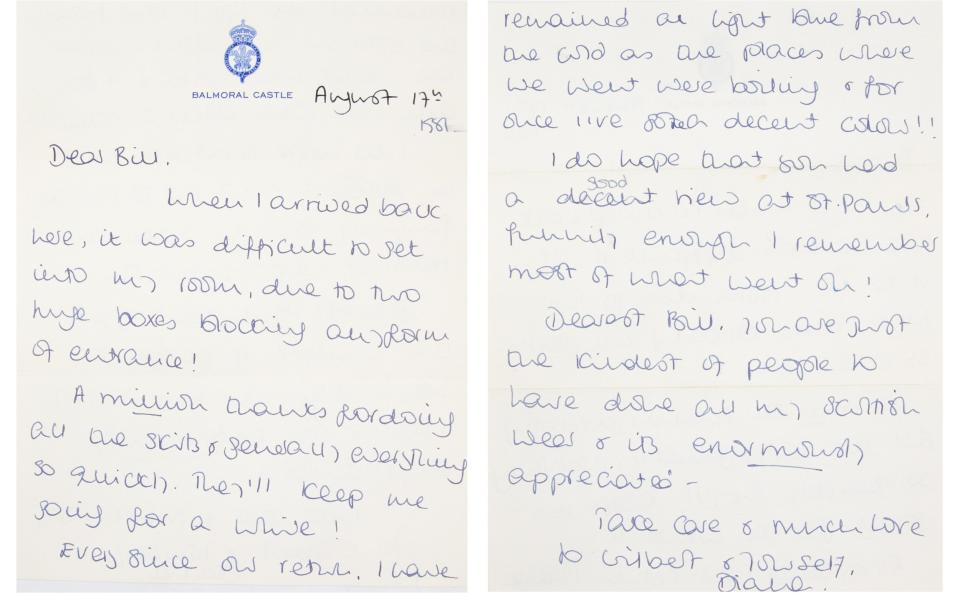 BALMORAL CASTLE
August 17th
1981
Dear Bill.
When I arrived back
here, it was difficult to get
into my room, due to two
huge boxes blocking any form
of entrance!
A million thanks for doing
all the skirts & generally everything
so quickly. They'll keep me
going for a while!
Ever since our return, I have
remained a light blue from
the cold as the places where
we went were boiling & for
once I've got a decent colour!!
I do hope that you had
good
a decent view at St. Pauls,
funnily enough I remember
most of what went on!
Dearest Bill. You are just
the kindest of people to
have done all my Scottish
wear & its enormously
appreciated -
Take care & much love
to Wilbert & yourself,
Diana.